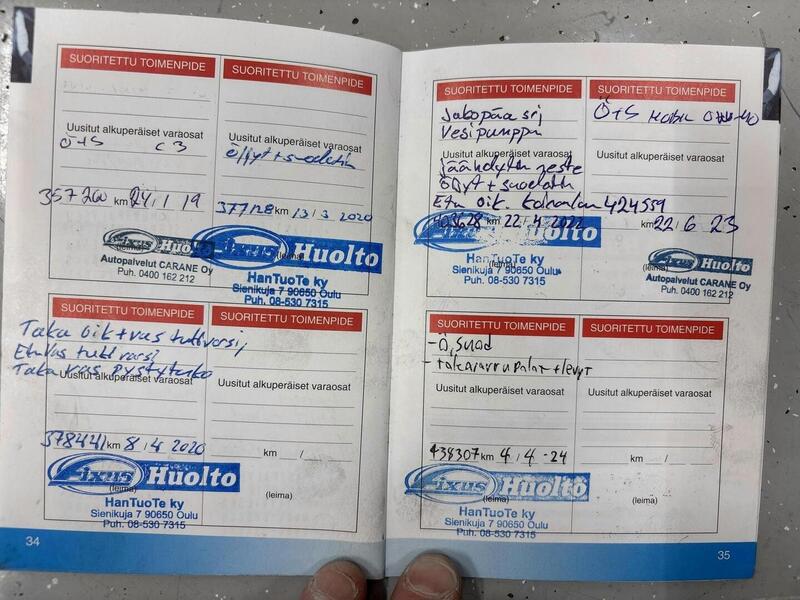 SUORITETTU TOIMENPIDE
Uusitut alkuperäiset varaosat
Ö+S C3
357260 km 24 / 1 19
Fixus Huolto
(leima)
Autopalvelut CARANE Oy
Puh. 0400 162 212
SUORITETTU TOIMENPIDE
Uusitut alkuperäiset varaosat
Öljyt + suodatin
377128 km 13 / 3 2020
Fixus Huolto
(leima)
HanTuoTe ky
Sienikuja 7 90650 Oulu
Puh. 08-530 7315
SUORITETTU TOIMENPIDE
Taka oik + vas tukivarsi
Etu vas tukivarsi
Taka vas pystytuko
Uusitut alkuperäiset varaosat
378441 km 8 / 4 2020
Fixus Huolto
(leima)
HanTuoTe ky
Sienikuja 7 90650 Oulu
Puh. 08-530 7315
SUORITETTU TOIMENPIDE
Uusitut alkuperäiset varaosat
km /
(leima)
34
SUORITETTU TOIMENPIDE
Jakopää srj
Vesipumppu
Uusitut alkuperäiset varaosat
jäähdytin neste
Öljyt + suodatin
Etu oik.
403628 km 22 / 4 2022
Fixus Huolto
(leima)
HanTuoTe ky
Sienikuja 7 90650 Oulu
Puh. 08-530 7315
SUORITETTU TOIMENPIDE
Ö+S
Uusitut alkuperäiset varaosat
424559
km 22 / 6 23
Fixus Huolto
(leima)
Autopalvelut CARANE Oy
Puh. 0400 162 212
SUORITETTU TOIMENPIDE
-Ö, suod
- takajarrupalat + levyt
Uusitut alkuperäiset varaosat
438307 km 4 / 4 -24
Fixus Huolto
(leima)
HanTuoTe ky
Sienikuja 7 90650 Oulu
Puh. 08-530 7315
SUORITETTU TOIMENPIDE
Uusitut alkuperäiset varaosat
km /
(leima)
35